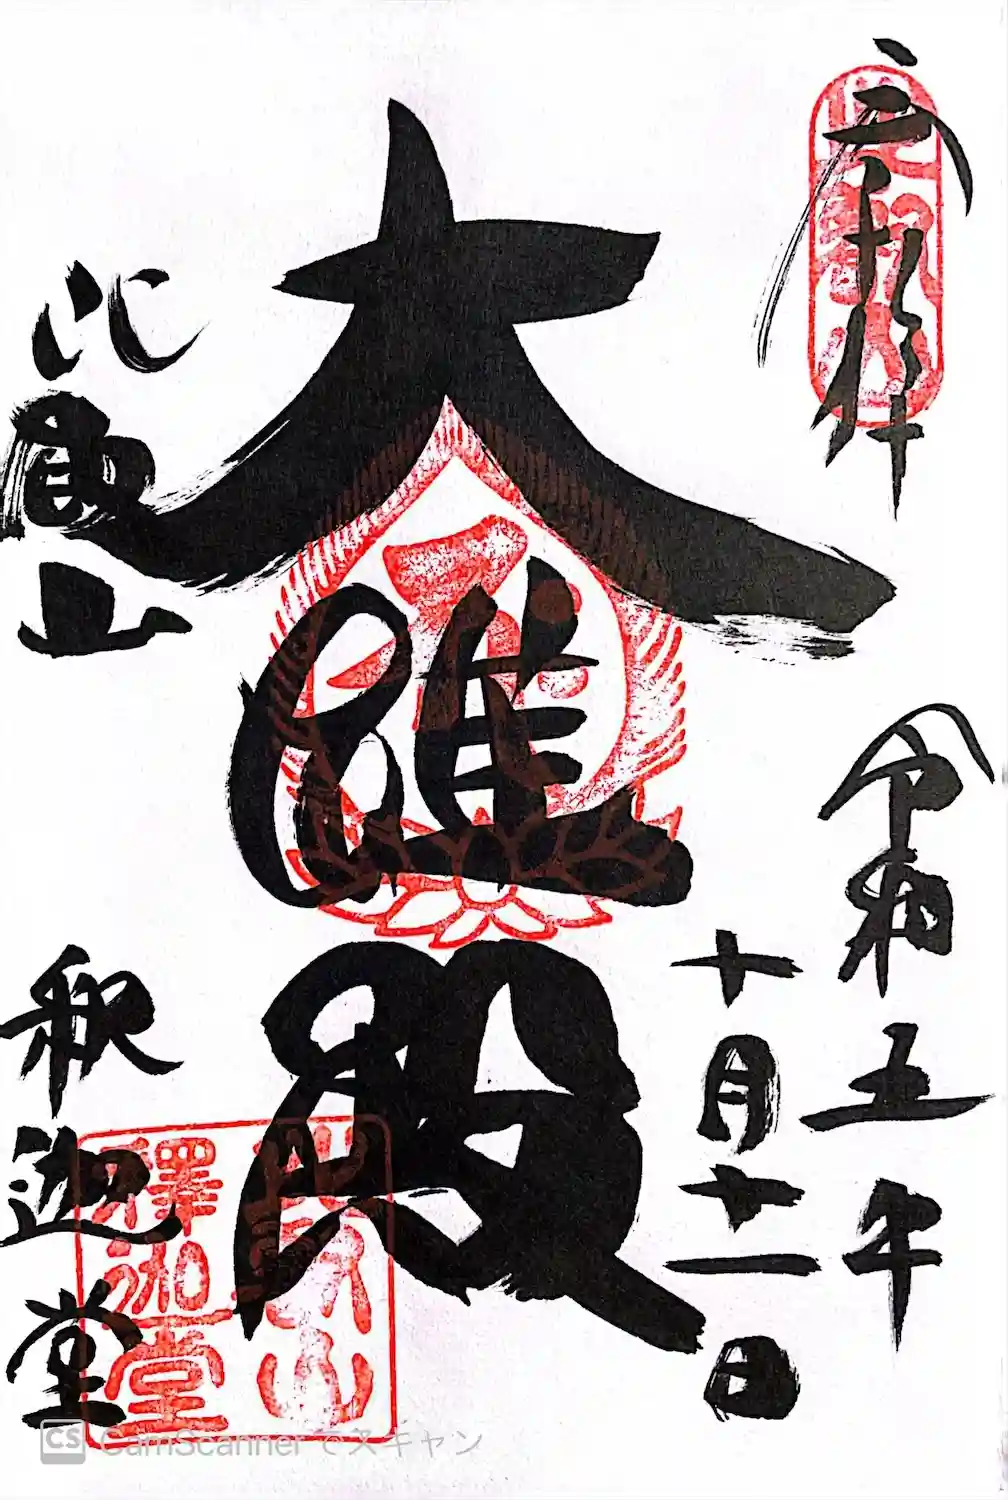 奉拝
令和五年
十月十一日
大雄殿
比叡山
釈迦堂
比叡山
釋迦堂
CS CamScannerでスキャン